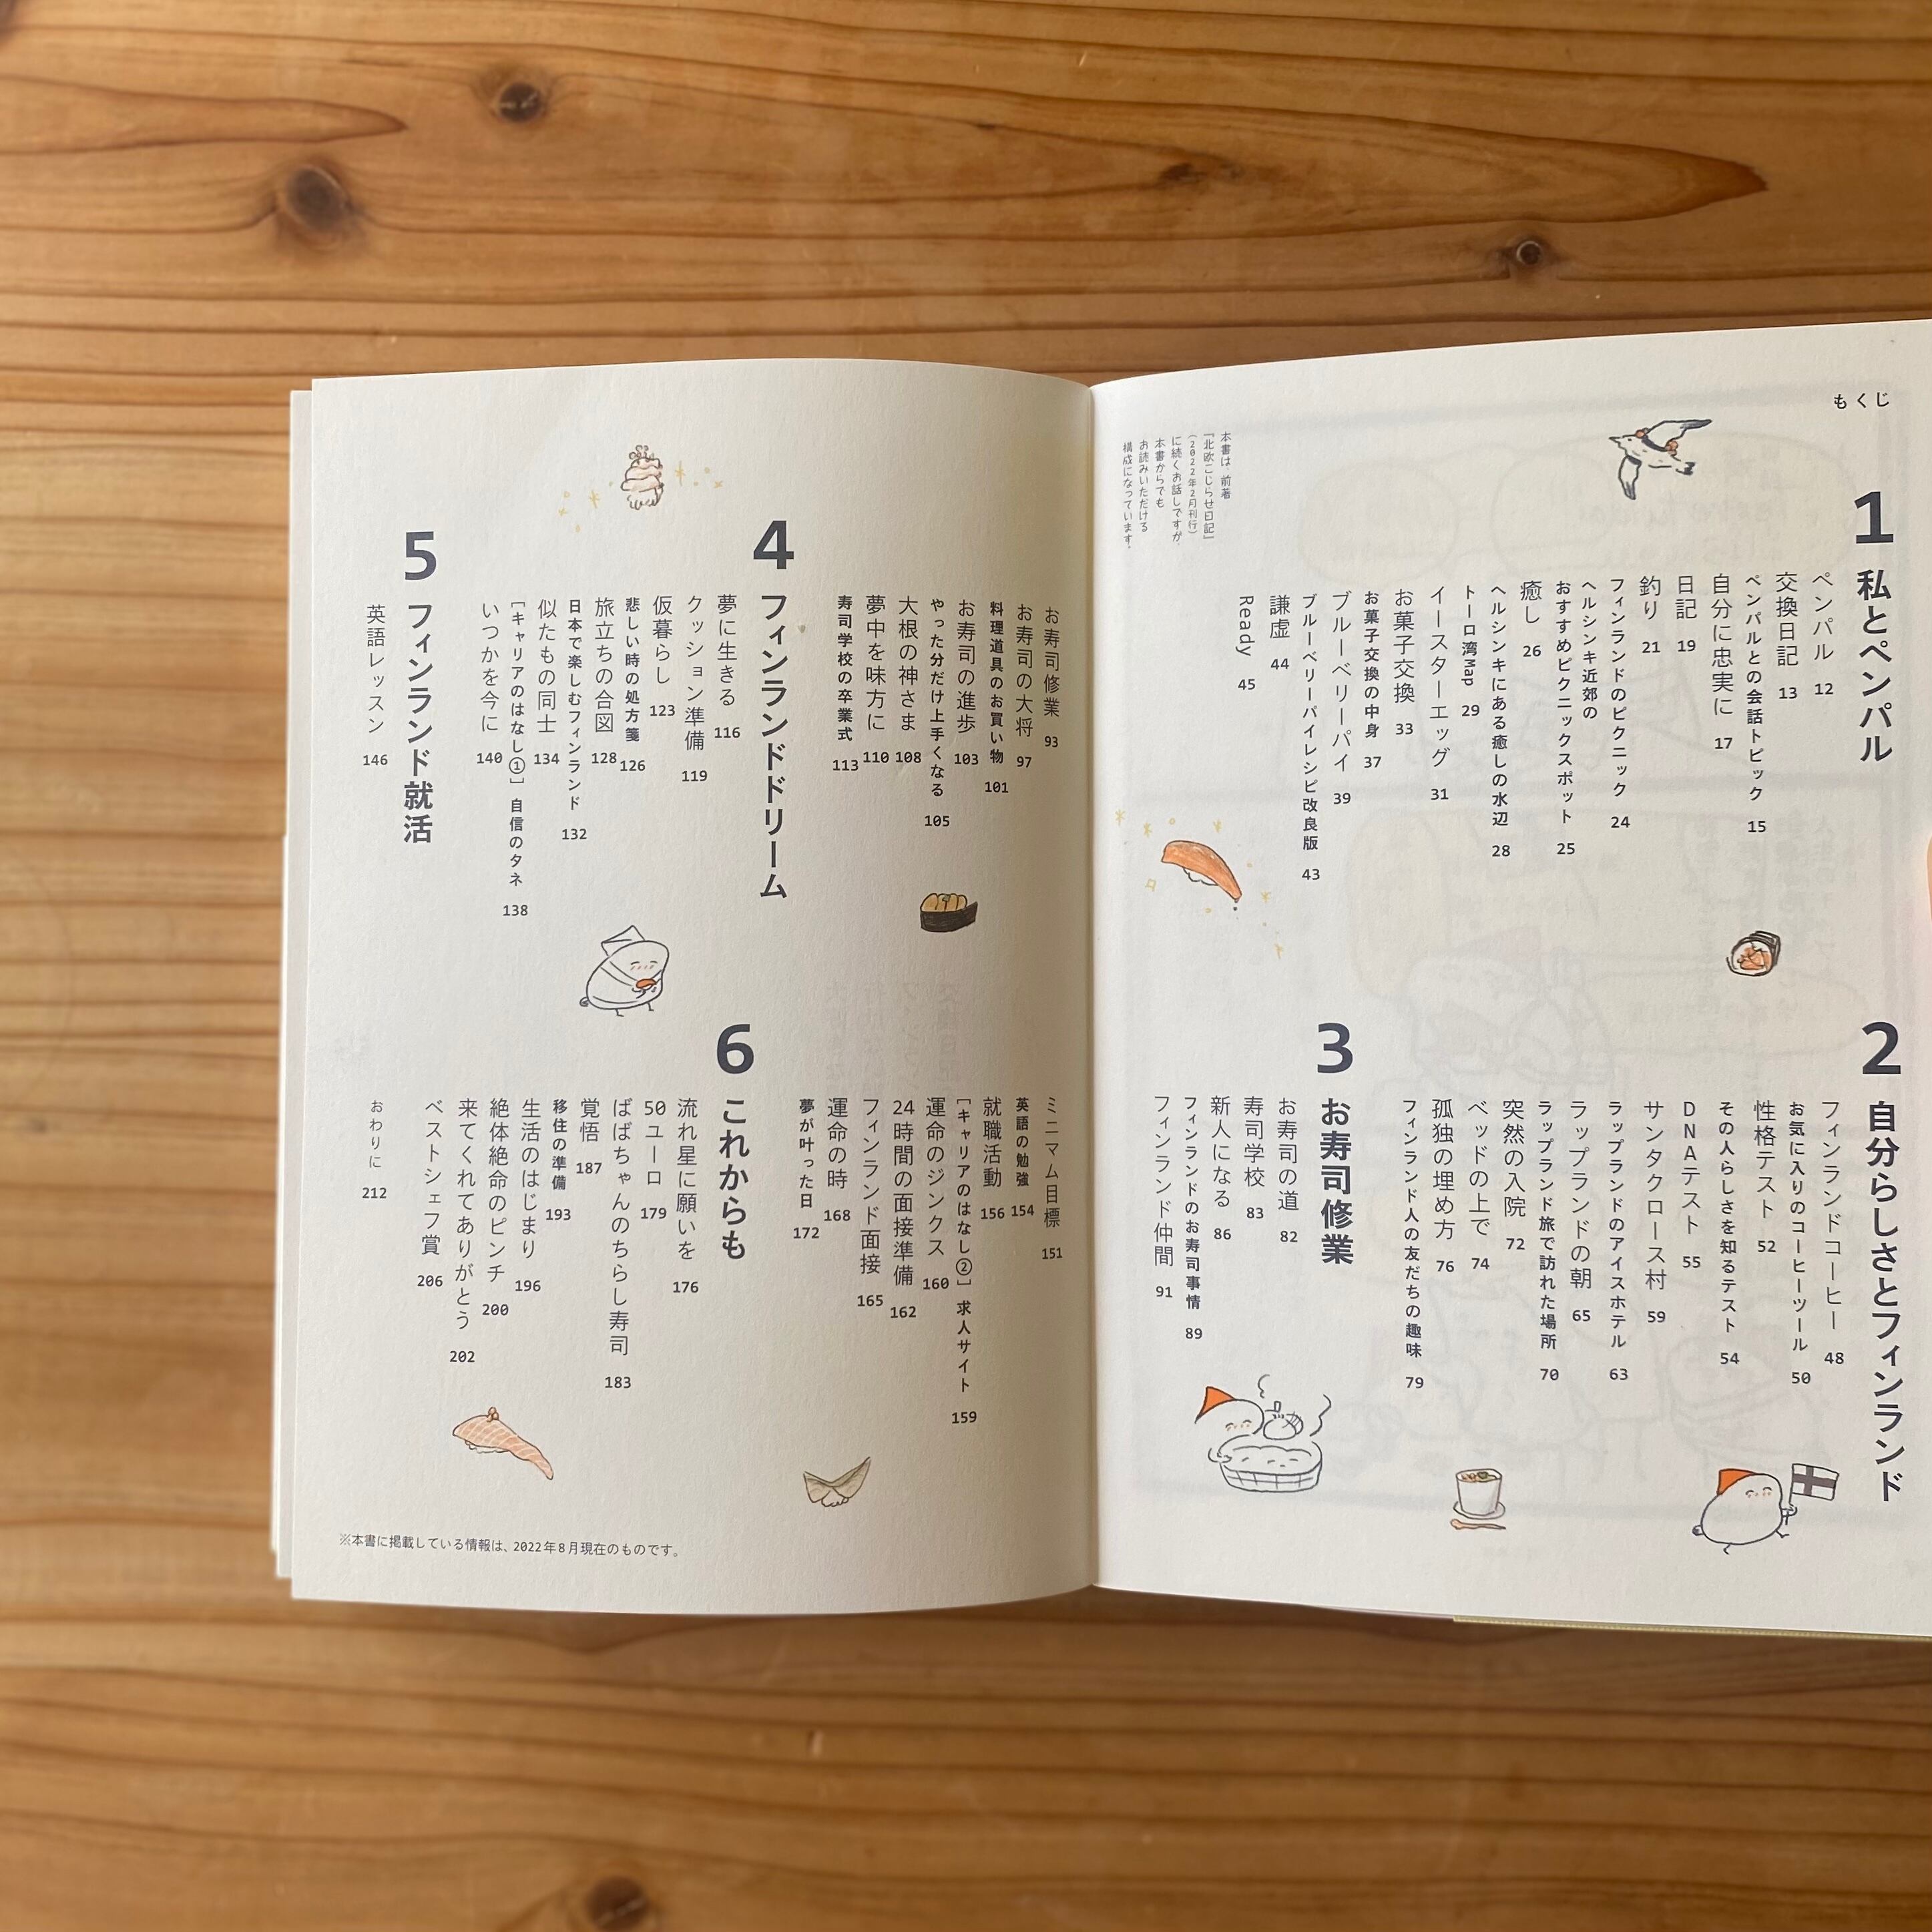 もくじ
1 私とペンパル
ペンパル 12
交換日記 13
ペンパルとの会話トピック 15
自分に忠実に 17
日記 19
釣り 21
フィンランドのピクニック 24
ヘルシンキ近郊の
おすすめピクニックスポット 25
癒し 26
ヘルシンキにある癒しの水辺 28
トーロ湾Map 29
イースターエッグ 31
お菓子交換 33
お菓子交換の中身 37
ブルーベリーパイ 39
ブルーベリーパイレシピ改良版 43
謙虚 44
Ready 45
本書は、前著
『北欧こじらせ日記』
(2022年2月刊行)
に続くお話しですが、
本書からでも
お読みいただける
構成になっています。
2 自分らしさとフィンランド
フィンランドコーヒー 48
お気に入りのコーヒーツール 50
性格テスト 52
その人らしさを知るテスト 54
DNAテスト 55
サンタクロース村 59
ラップランドのアイスホテル 63
ラップランドの朝 65
ラップランド旅で訪れた場所 70
突然の入院 72
ベッドの上で 74
孤独の埋め方 76
フィンランド人の友だちの趣味 79
3 お寿司修業
お寿司の道 82
寿司学校 83
新人になる 86
フィンランドのお寿司事情 89
フィンランド仲間 91
お寿司修業 93
お寿司の大将 97
料理道具のお買い物 101
お寿司の進歩 103
やった分だけ上手くなる 105
大根の神さま 108
夢中を味方に 110
寿司学校の卒業式 113
4 フィンランドドリーム
夢に生きる 116
クッション準備 119
仮暮らし 123
悲しい時の処方箋 126
旅立ちの合図 128
日本で楽しむフィンランド 132
似たもの同士 134
[キャリアのはなし①] 自信のタネ 138
いつかを今に 140
5 フィンランド就活
英語レッスン 146
ミニマム目標 151
英語の勉強 154
就職活動 156
[キャリアのはなし②] 求人サイト 159
運命のジンクス 160
24時間の面接準備 162
フィンランド面接 165
運命の時 168
夢が叶った日 172
6 これからも
流れ星に願いを 176
50ユーロ 179
ばばちゃんのちらし寿司 183
覚悟 187
移住の準備 193
生活のはじまり 196
絶体絶命のピンチ 200
来てくれてありがとう 202
ベストシェフ賞 206
おわりに 212
※本書に掲載している情報は、2022年8月現在のものです。